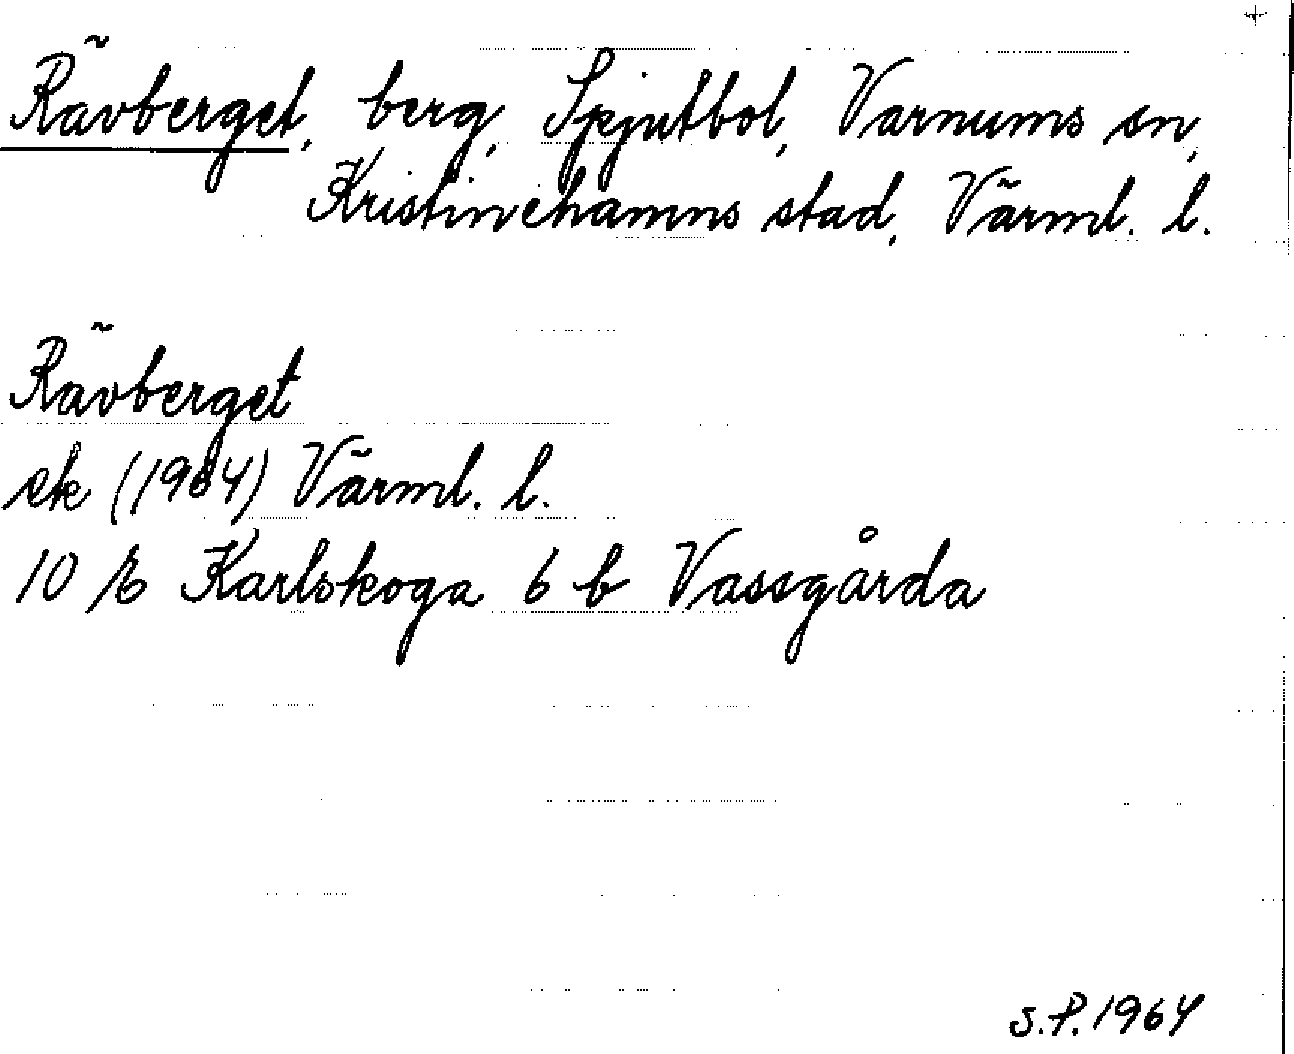 Rävberget, berg, Spjutbol, Varnums sn,
Kristinehamns stad, Värml. l.
Rävberget
ek (1964) Värml. l.
10 E Karlskoga 6 b Vassgårda
S.P. 1964